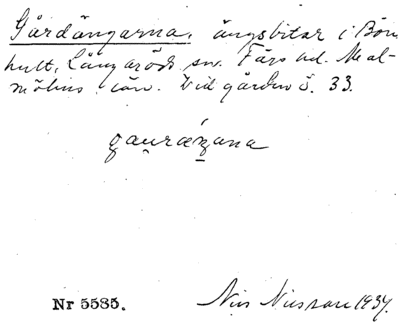 Gårdängarna, ängsbitar i Bön
hult, Långaröds sn. Färs hd. Mal-
möhus län. Vid gården ö. 33.
Nr 5585. Nils Nilsson 1934.